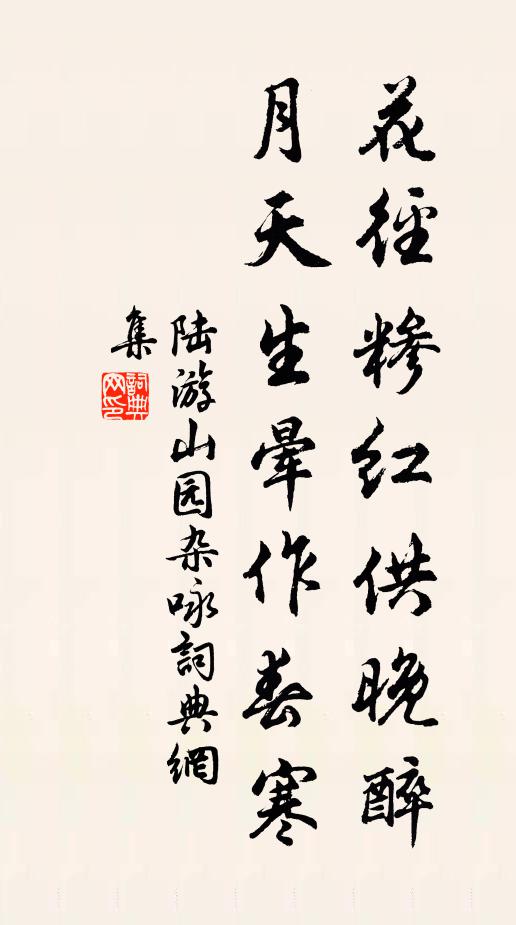 花径糁红供晚醉
月天生晕作春寒
陆游山园杂咏詞典網
集
詞典
网印